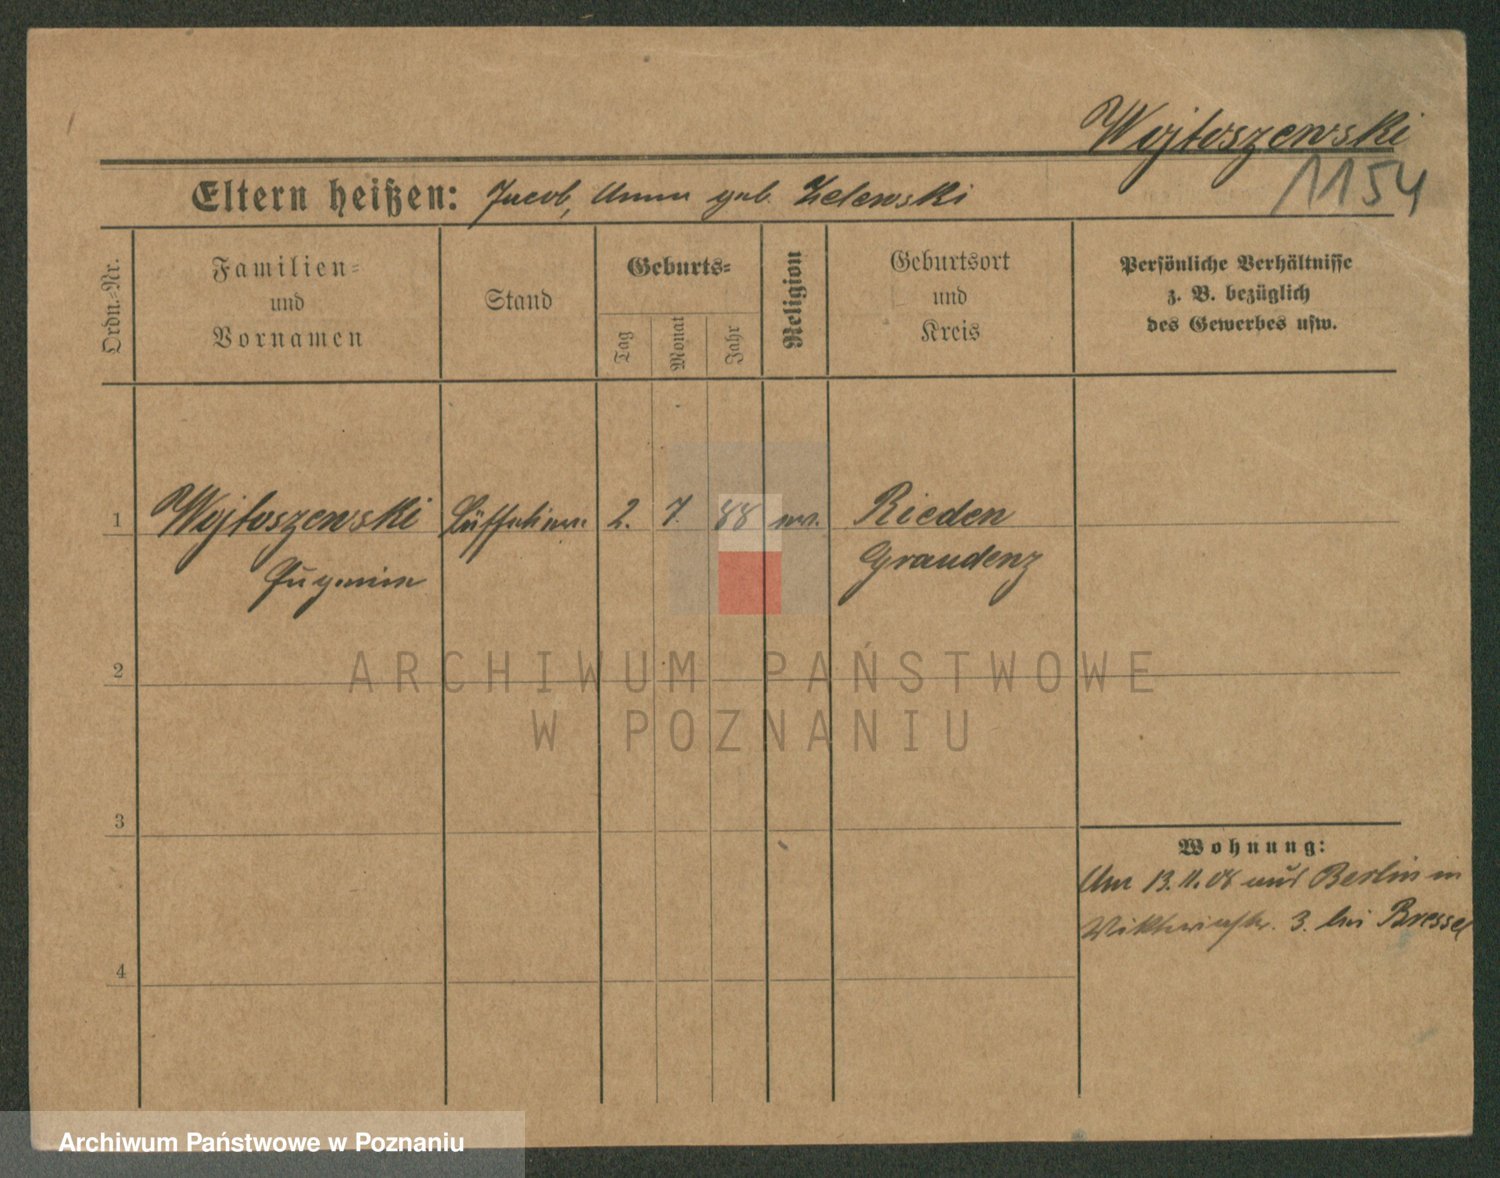 Wojtoszewski
1154
Eltern heißen: Jacob, Anna geb. Zelewski
Ordn.-Nr.
Familien-
und
Vornamen
Stand
Geburts-
Tag
Monat
Jahr
Religion
Geburtsort
und
Kreis
Persönliche Verhältnisse
z. B. bezüglich
des Gewerbes usw.
1 Wojtoszewski Büffetier. 2. 7. 88 ev. Rieden
Graudenz
2
ARCHIWUM PAŃSTWOWE
W POZNANIU
3
Wohnung:
Am 13.11.08 aus Berlin in
Viktoriastr. 3. bei Bressel
4
Archiwum Państwowe w Poznaniu